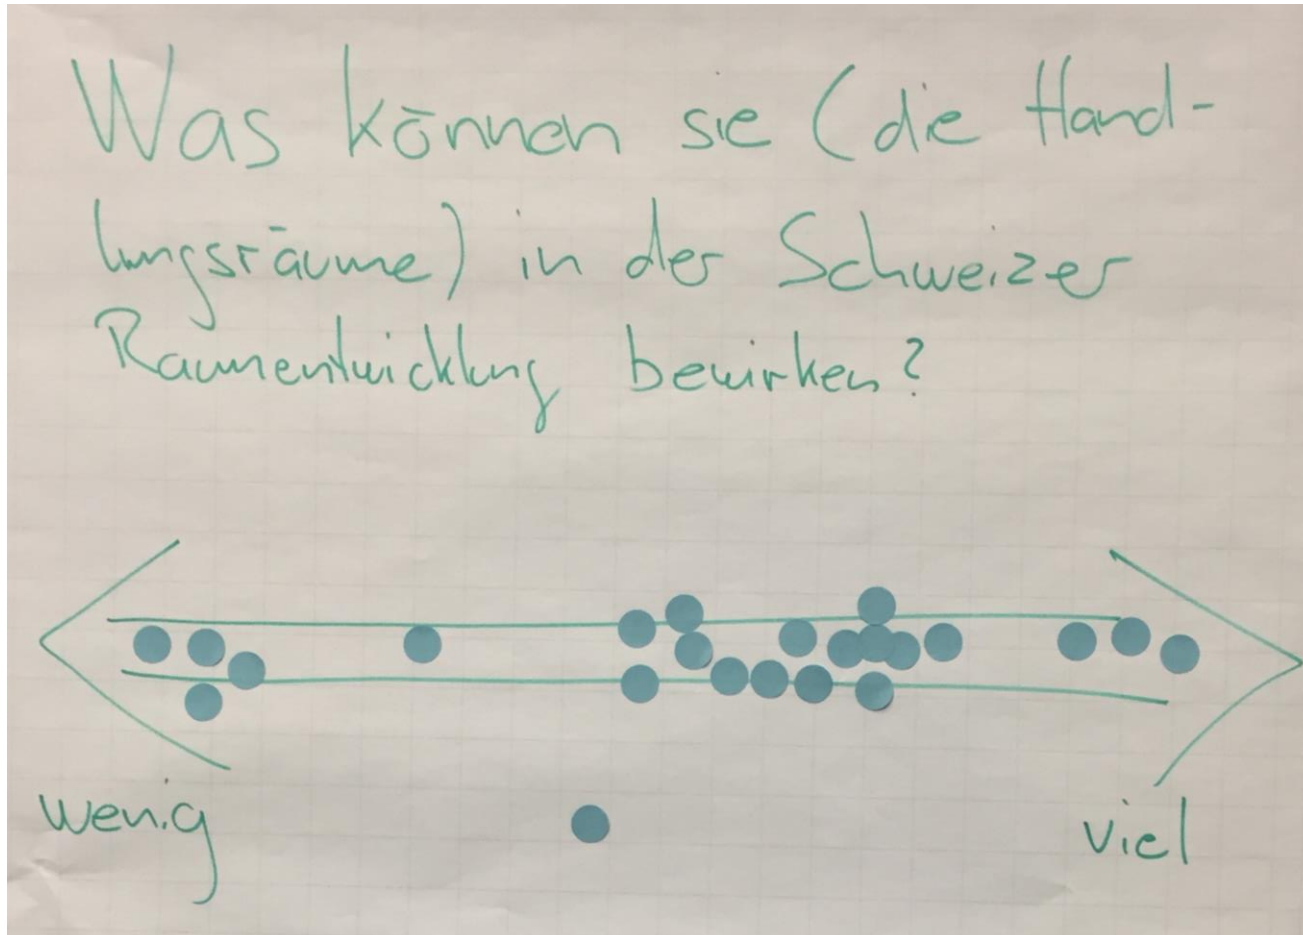 Was können sie (die Hand-
lungsräume) in der Schweizer
Raumentwicklung bewirken?
wenig
viel